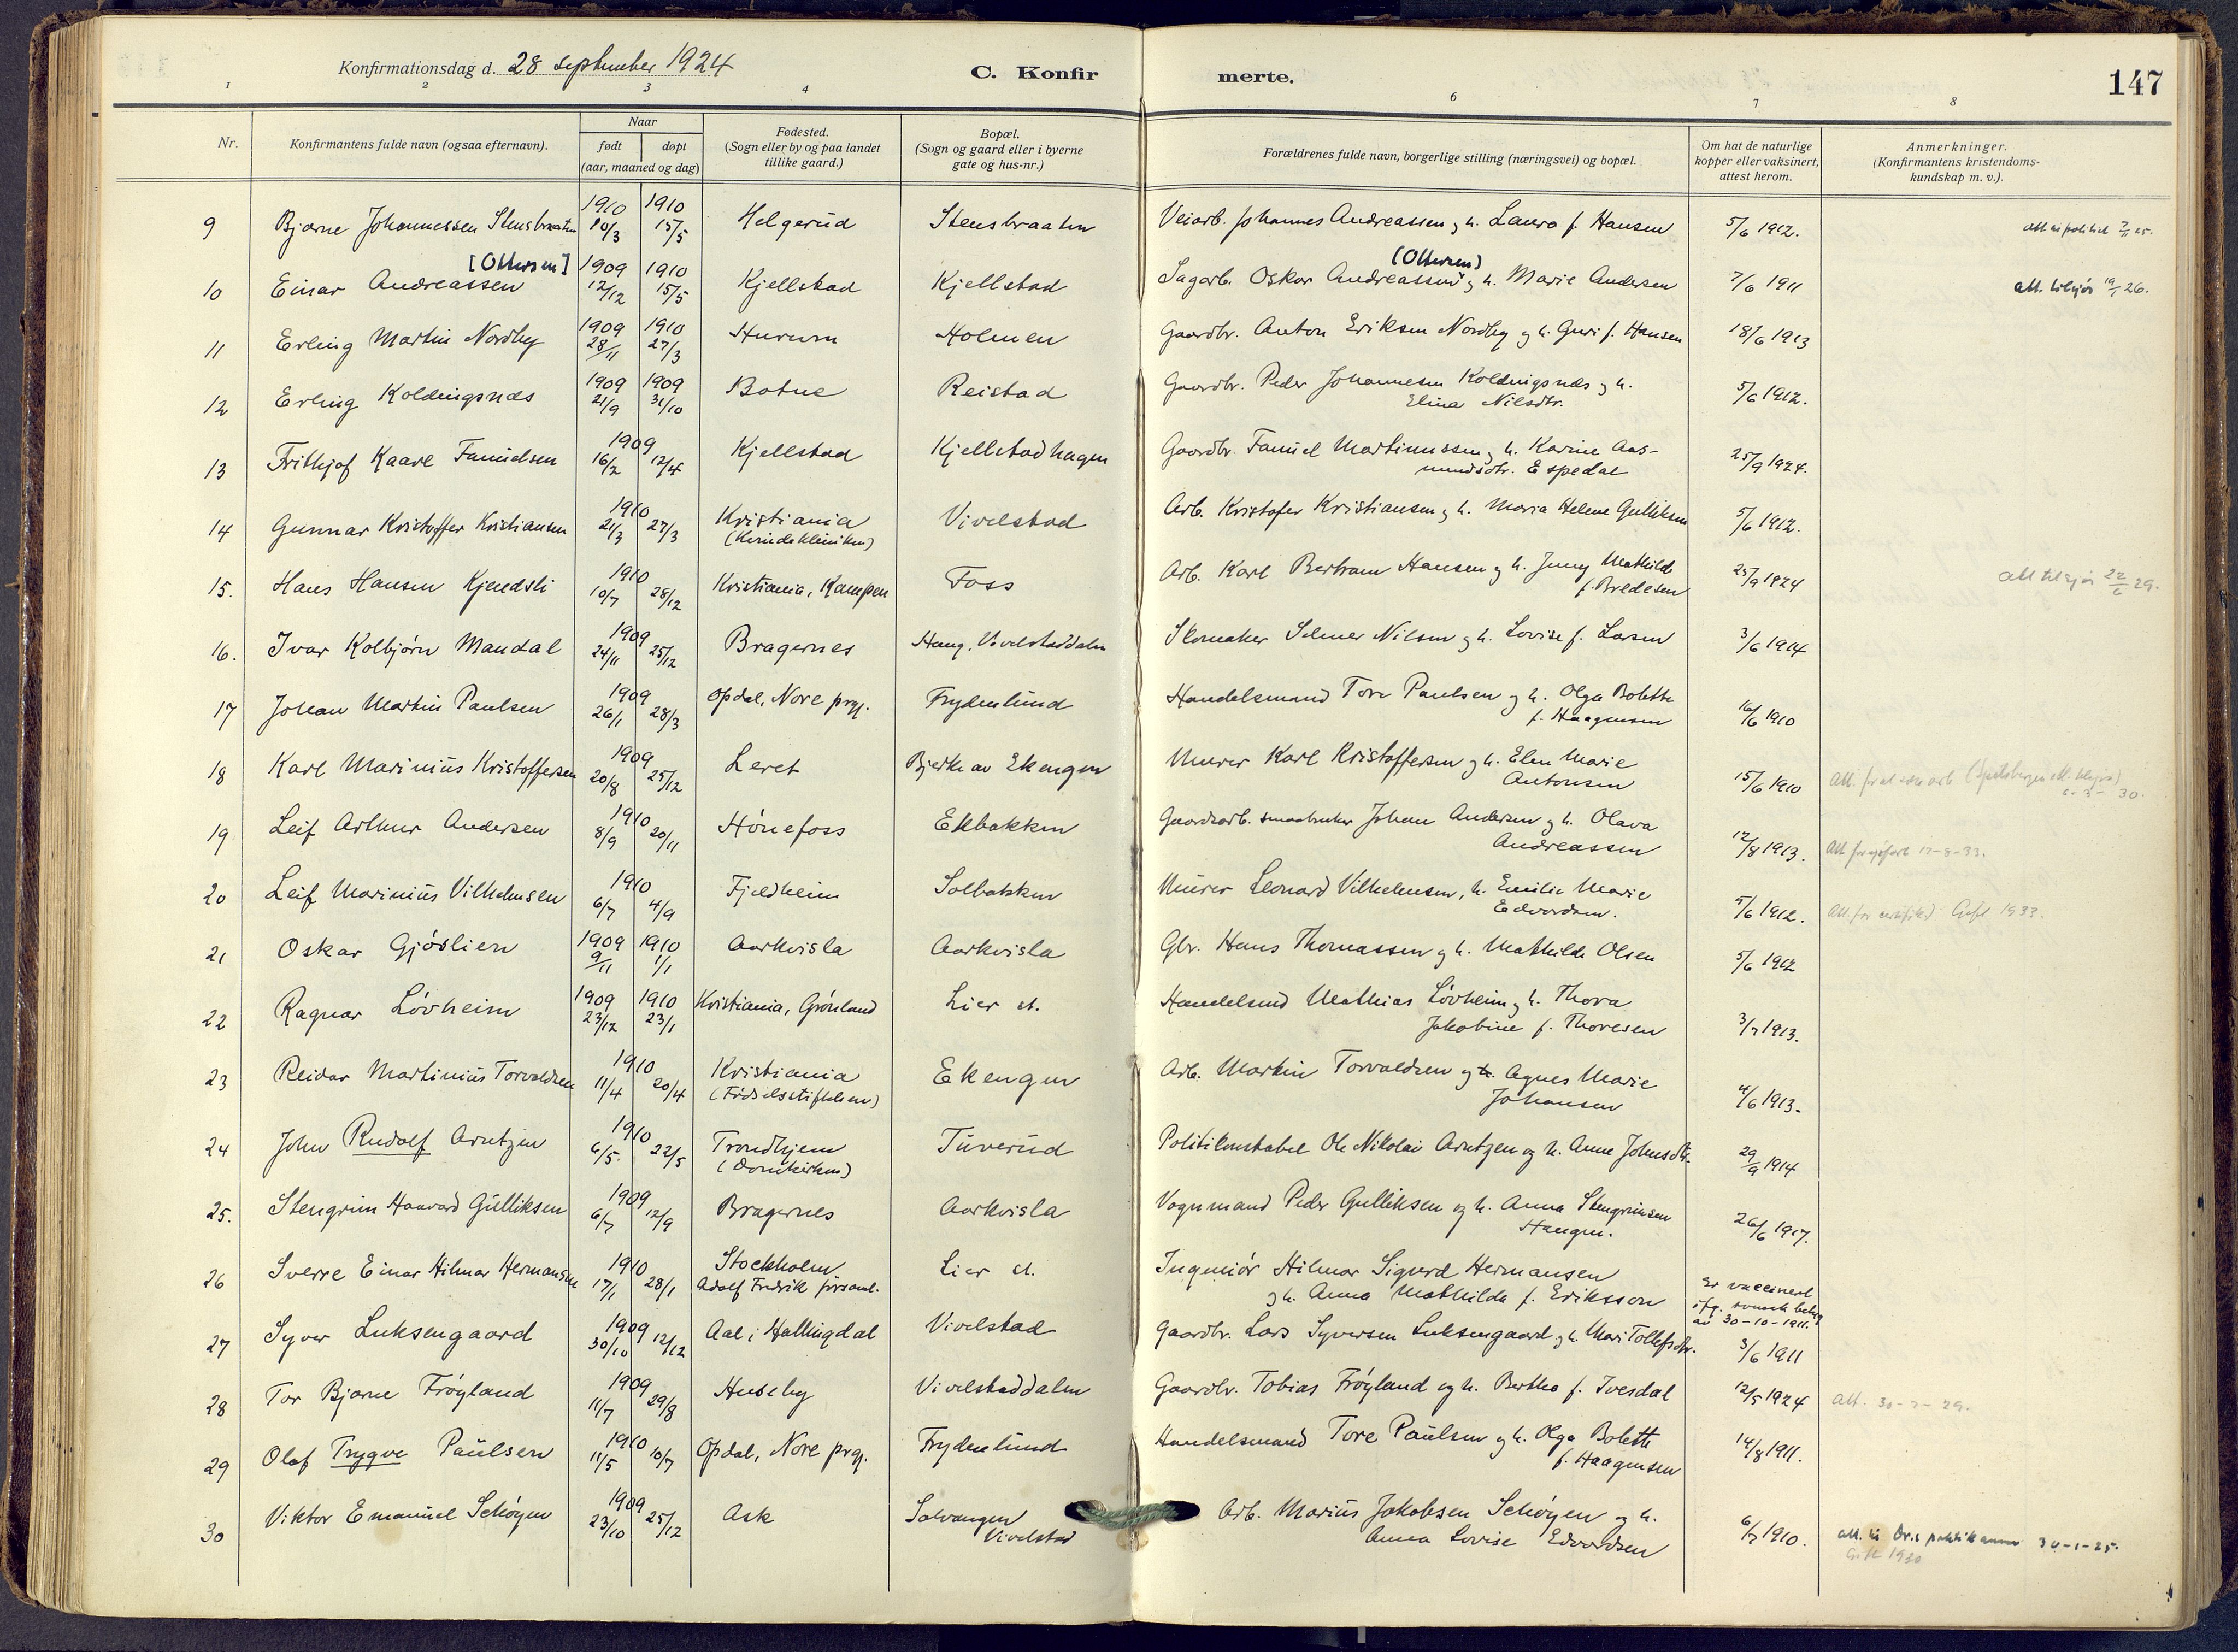 Konfirmationsdag d. 28 september 1924
C. Konfir merte.
147
1 2 3 4 6 7 8
Nr.
Konfirmantens fulde navn (ogsaa efternavn).
Naar
født døpt
(aar, maaned og dag)
Fødested.
(Sogn eller by og paa landet
tillike gaard.)
Bopæl.
(Sogn og gaard eller i byerne
gate og hus-nr.)
Forældrenes fulde navn, borgerlige stilling (næringsvei) og bopæl.
Om hat de naturlige
kopper eller vaksinert,
attest herom.
Anmerkninger.
(Konfirmantens kristendoms-
kundskap m. v.).
9 Bjarne Johannessen Stensbraaten 1910 10/3 1910 15/5 Helgerud Stensbraaten Veiarb. Johannes Andreassen og h. Laura f. Hansen 5/6 1912.
10 Einar Andreassen [Ottersen] 1909 12/12 1910 15/5 Kjellstad Kjellstad Sagarb. Oskar Andreassen (Ottersen) og h. Marie Andersen 7/6 1911 att. 26.
11 Erling Martin Nordby 1909 28/11 1910 27/3 Hurum Holmen Gaardbr. Anton Eriksen Nordby og h. Guri f. Hansen 18/6 1913
12 Erling Koldingsnes 1909 21/9 1909 31/10 Botne Reistad Gaardbr. Peder Johannesen Koldingsnes og h.
Elina Nilsdtr. 5/6 1912.
13 Frithjof Kaare Famuelsen 1909 16/2 12/4 Kjellstad Kjellstadhagen Gaardbr. Famuel Martinussen og h. Karine Aas-
mundsdtr. Espedal 25/9 1924.
14 Gunnar Kristoffer Kristiansen 1910 21/3 27/3 Kristiania
(Kvindeklinikken) Vivelstad Arb. Kristofer Kristiansen og h. Maria Helene Gulliksen 5/6 1912.
15. Hans Hansen Kjendsli 1910 10/7 28/12 Kristiania, Kampen Foss Arb. Karl Bertram Hansen og h. Jenny Mathild
f. Bredesen 25/9 1924 29.
16. Ivar Kolbjørn Mandal 1909 24/11 25/12 Bragernes Haug, Vivelstaddalen Skomaker Selmer Nilsen og h. Lovise f. Larsen 3/6 1914
17 Johan Martin Paulsen 1909 26/1 28/3 Opdal, Nore prgj. Frydenlund Handelsmand Tore Paulsen og h. Olga Bolette
f. Haagensen 16/6 1910
18 Karl Marinius Kristoffersen 1909 20/8 25/12 Leret Bjerke av Ekengen Murer Karl Kristoffersen og h. Elen Marie
Antonsen 15/6 1910 30.
19 Leif Arthur Andersen 1910 8/9 20/11 Hönefoss Ekbakken Gaardsarb. smaabruker Johan Andersen og h. Olava
Andreassen 12/8 1913. Att. 12-8-33.
20 Leif Marinius Vilhelmsen 1910 6/7 4/9 Fjeldheim Solbakken Murer Leonard Vilhelmsen, h. Emilie Marie
Edvardsen. 5/6 1912. Att. for 1933.
21 Oskar Gjöslien 1909 9/11 1910 1/1 Aarkvisla Aarkvisla Gbr. Hans Thomassen og h. Mathilde Olsen 5/6 1912
22 Ragnar Lövheim 1909 23/12 1910 23/1 Kristiania, Grönland Lier st. Handelsmd Mathias Lövheim og h. Thora
Jakobine f. Thoresen 3/7 1913.
23 Reidar Martinius Torvaldsen 1910 11/4 20/4 Kristiania
(Födselsstiftelsen) Ekengen Arb. Martin Torvaldsen og h. Agnes Marie
Johansen 4/6 1913.
24 John Rudolf Arntzen 1910 6/5. 22/5 Trondhjem
(Domkirken) Tuverud Politikonstabel Ole Nikolai Arntzen og h. Anne Johnsdtr. 29/9 1914
25. Stengrim Haavard Gulliksen 1909 6/7 12/9 Bragernes Aarkvisla Vognmand Peder Gulliksen og h. Anna Stengrimsen
Haugen. 26/6 1917.
26 Sverre Einar Hilmar Hermansen 1910 17/1 28/1 Stockholm
Adolf Fredrik församl. Lier st. Ingeniör Hilmar Sigurd Hermansen
og h. Anna Mathilda f. Eriksson Er vaccinert
ifg. svensk
av 30-10-1911.
27 Syver Luksengaard 1909 30/10 12/12 Aal i Hallingdal Vivelstad Gaardbr. Lars Syversen Luksengaard og h. Mari Tollefsdtr. 3/6 1911
28 Tor Bjarne Fröyland 1909 11/7 29/8 Huseby Vivelstaddalen Gaardbr. Tobias Fröyland og h. Bertha f. Ivesdal 12/5 1924 Att. 30-7-29.
29 Olaf Trygve Paulsen 1910 11/5 10/7 Opdal, Nore prgj. Frydenlund Handelsmand Tore Paulsen og h. Olga Bolette
f. Haagensen 14/8 1911.
30 Viktor Emanuel Schöyen 1909 23/10 25/12 Ask Solvangen
Vivelstad Arb. Marius Jakobsen Schöyen og h.
Anna Lovise Edvardsen 6/7 1910. att. 30-1-25.
Gift 1930